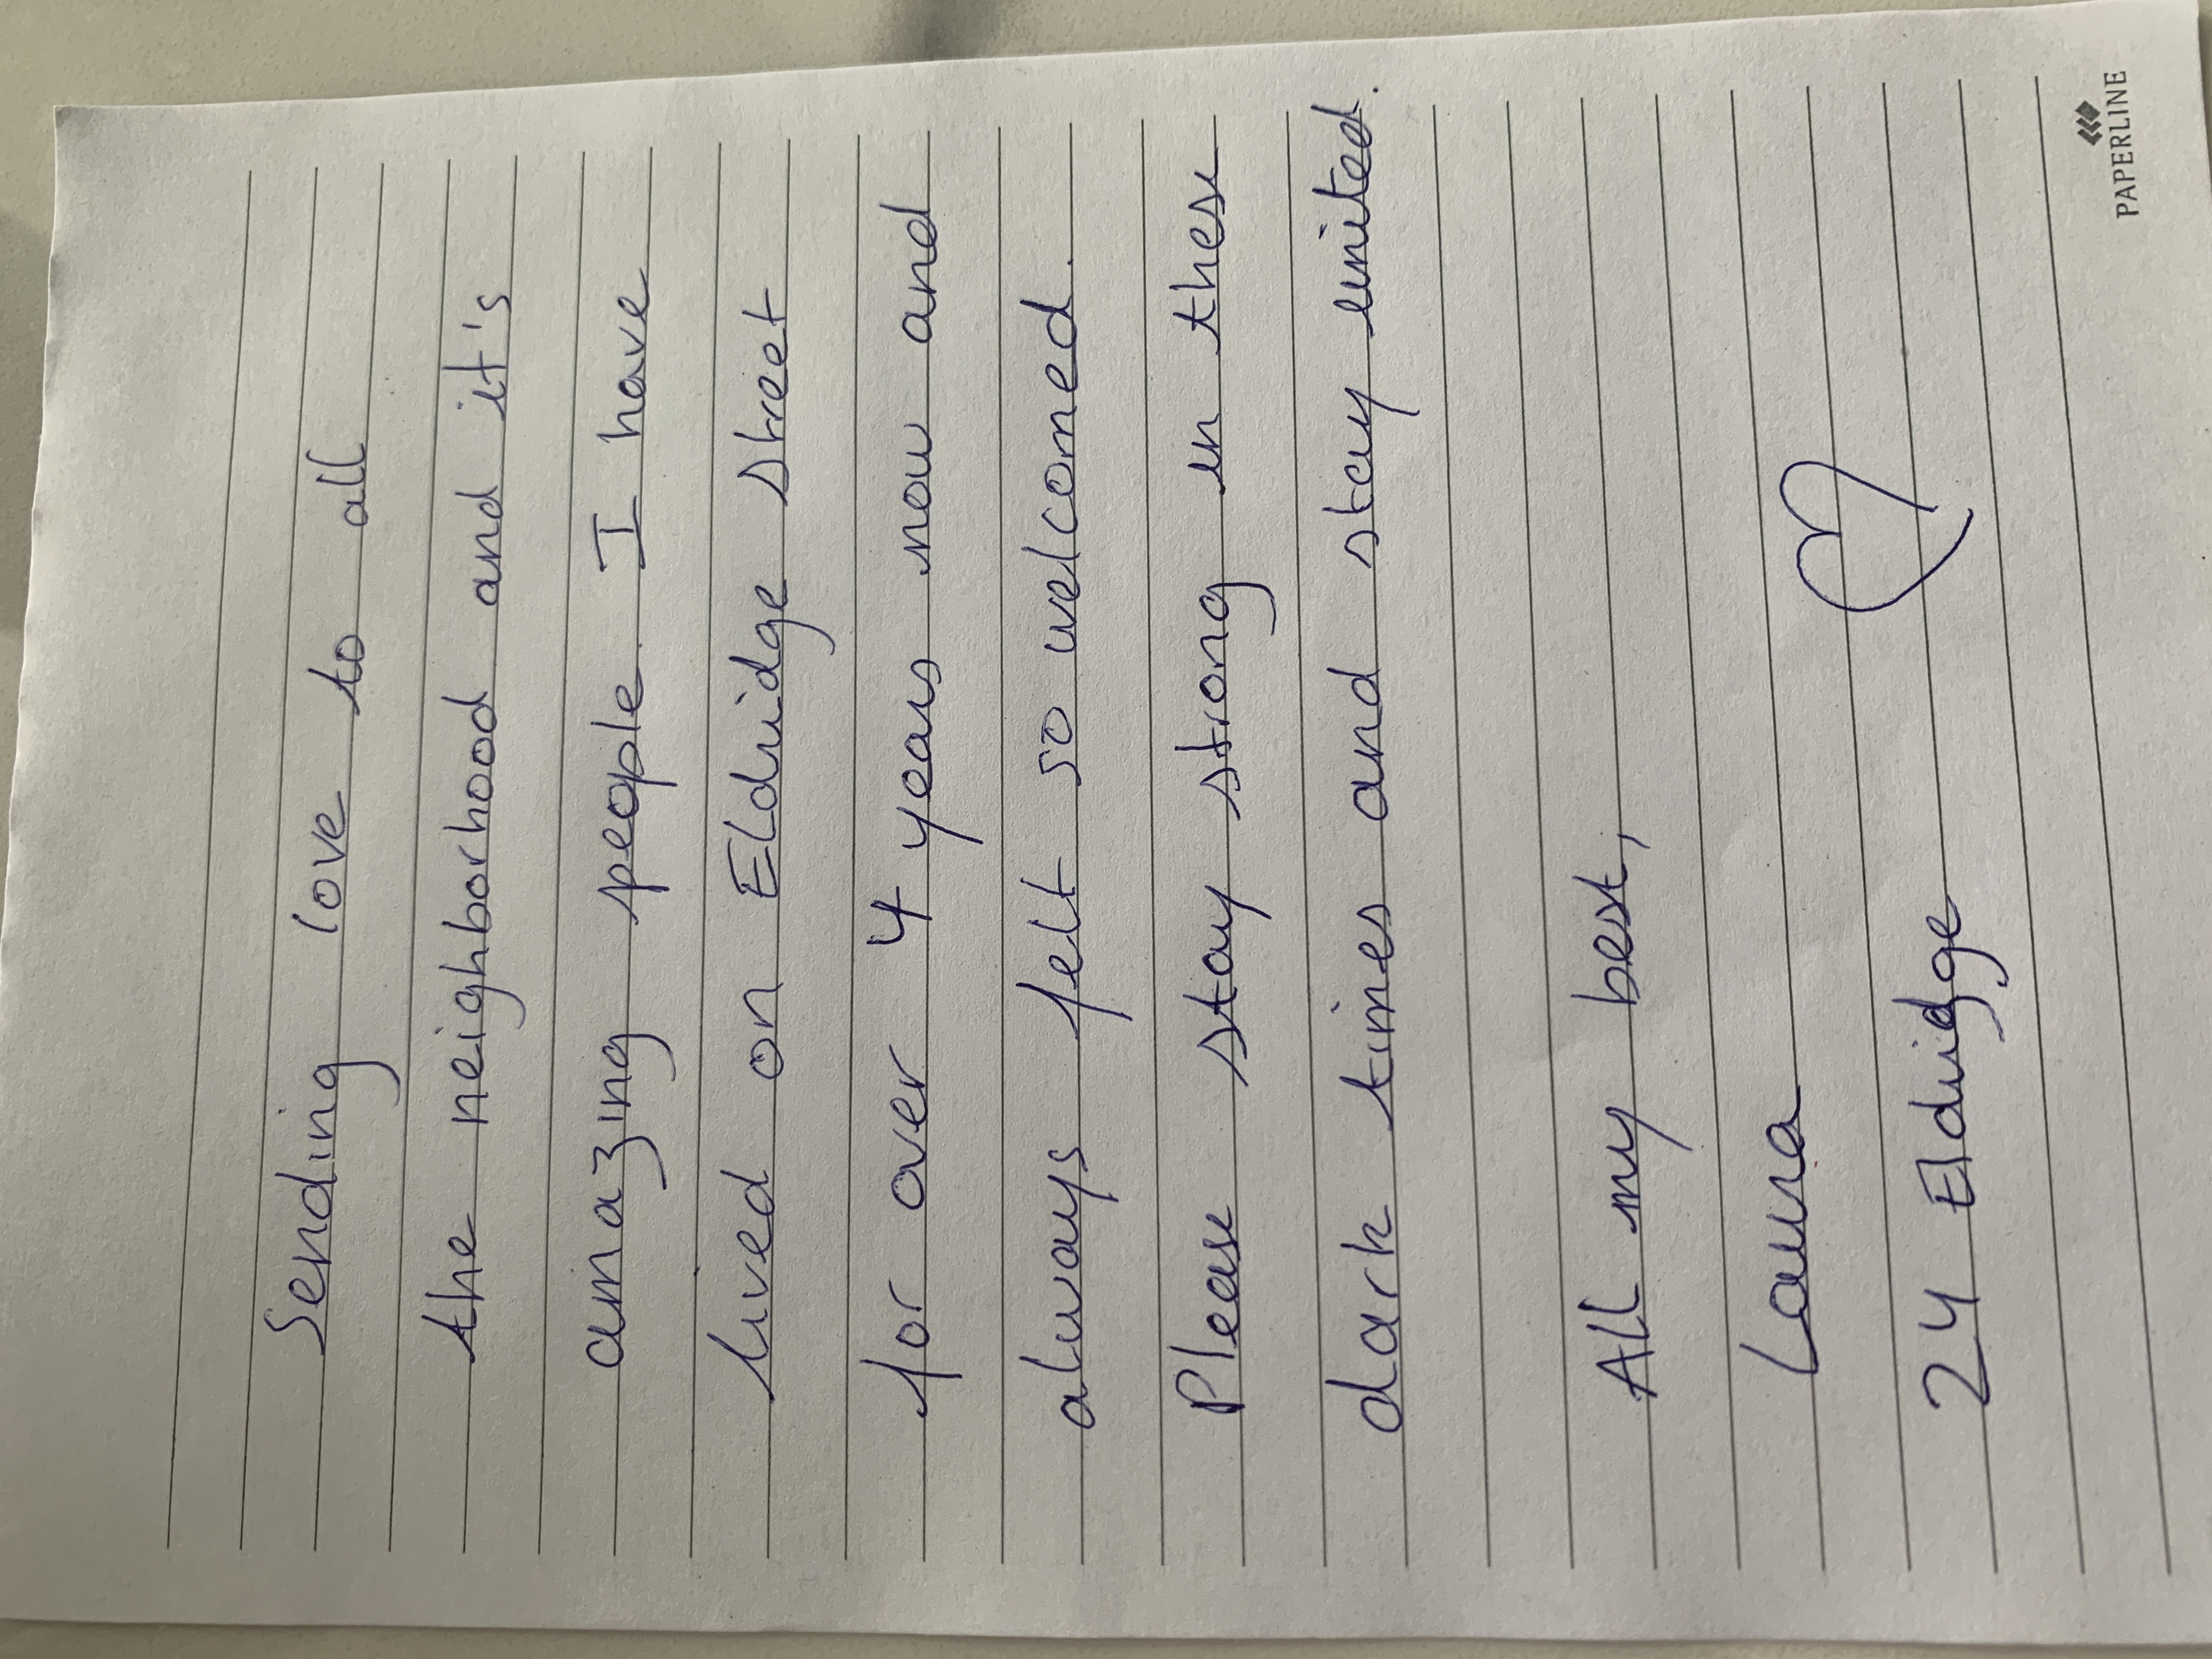 Sending love to all
the neighborhood and it's
amazing people. I have
lived on Eldridge street
for over 4 years now and
always felt so welcomed.
Please stay strong in these
dark times and stay united.
All my best,
Laura
24 Eldridge
PAPERLINE